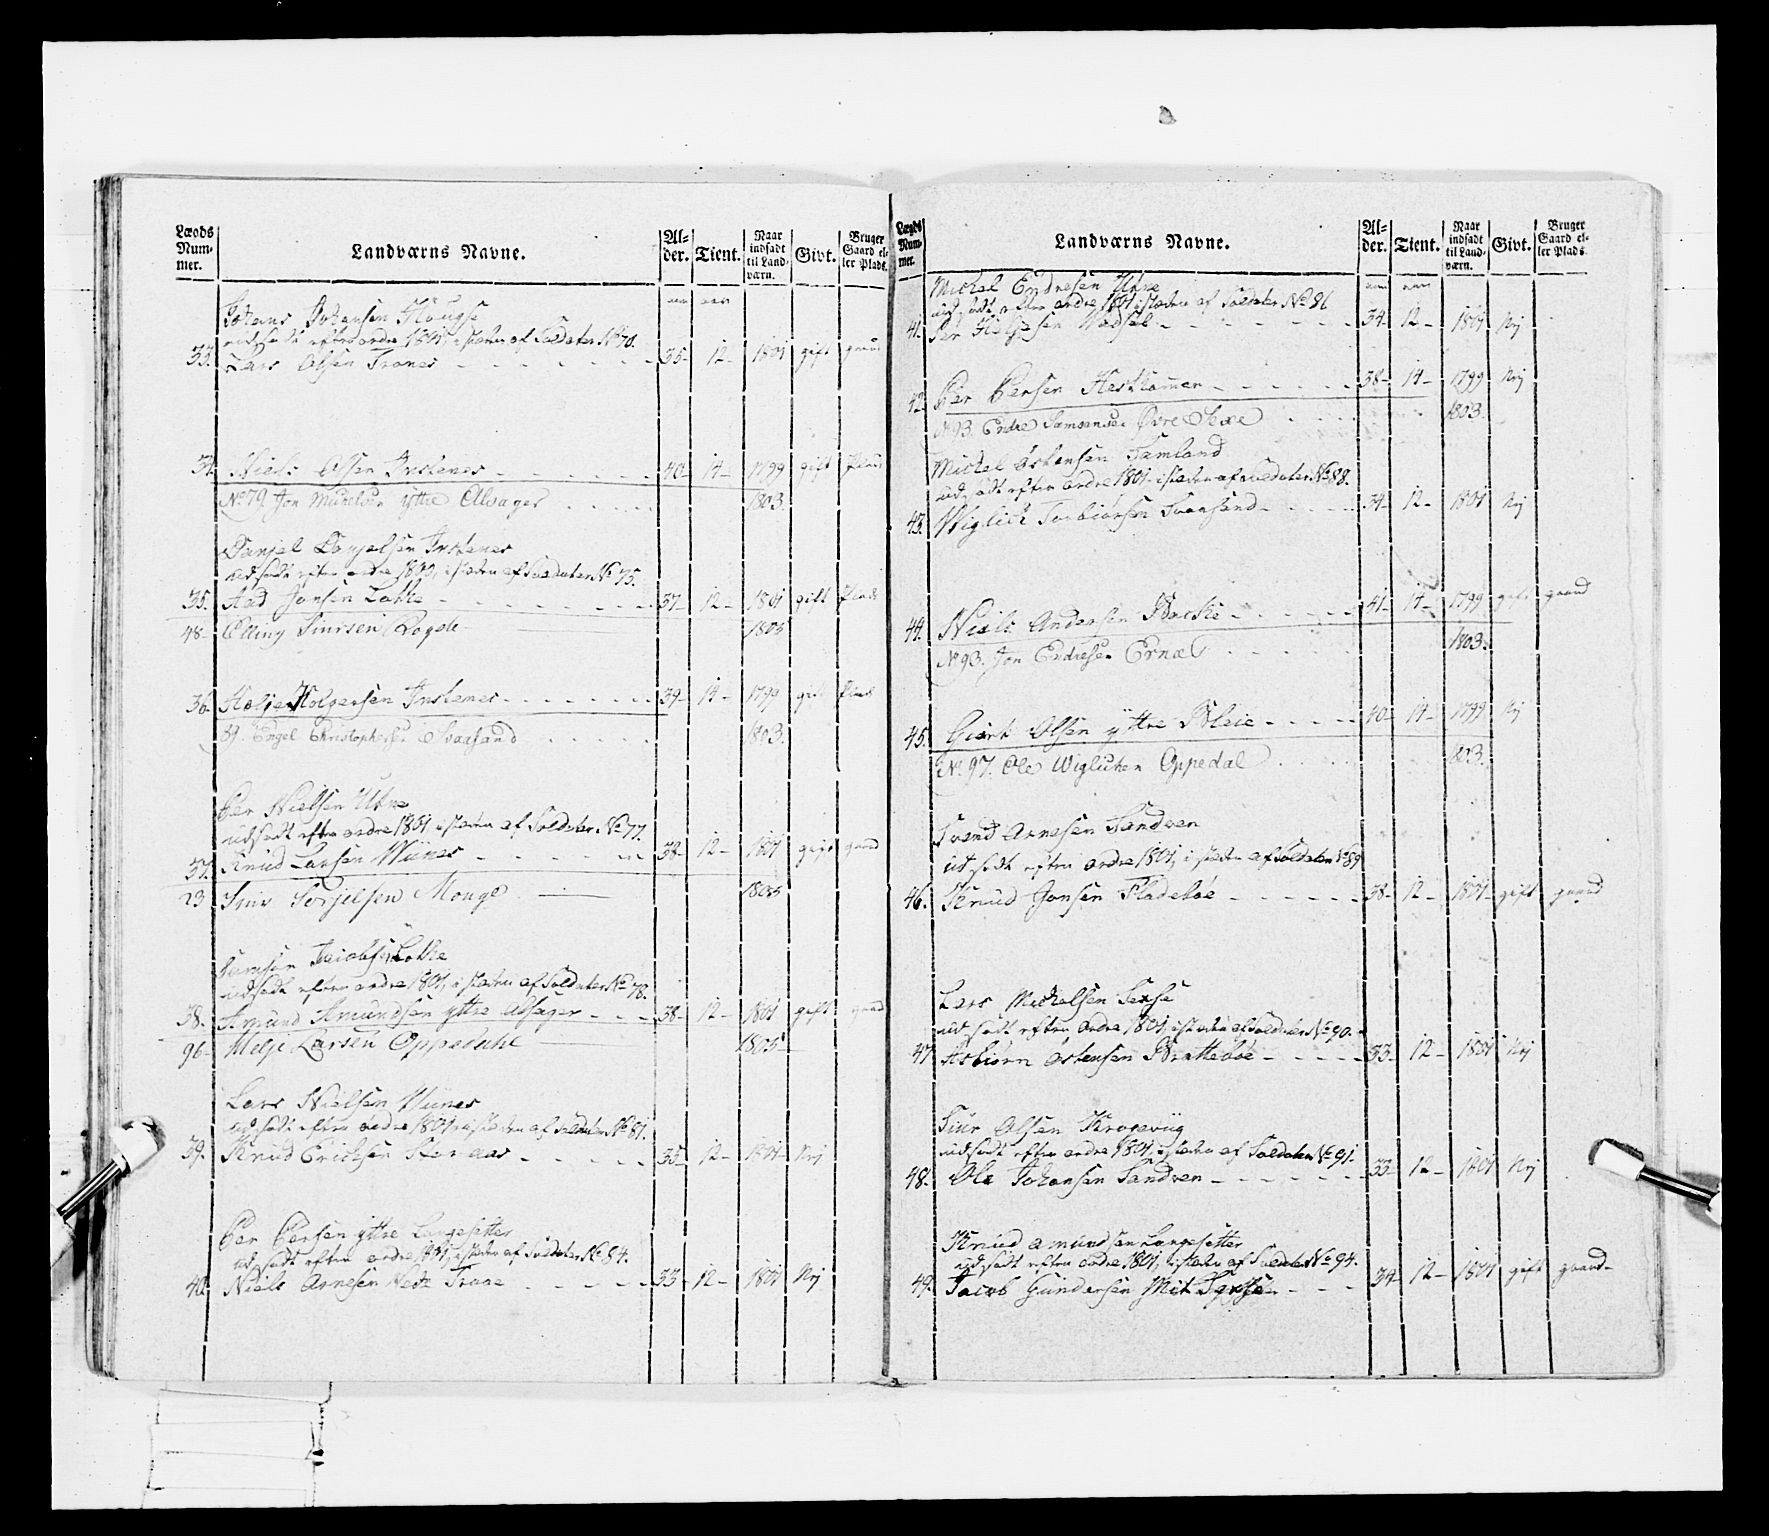 Lægds Nummer. Landværns Navne. Alder. Tient. Naar indsadt til Landværn. Givt. Bruger Gaard eller Plads.
aar aar
Johans Johansen
udsadt efter ordre 1801, i stæden af Soldaten No 70.
33. Lars Olsen Tranes 35 12 1801 gift gaard
34. Niels Olsen Instenes 40 14 1799 gift Plads
No 79 Jon Michelsen yttre Alsager 1803.
Danjel Danjelsen Instenes
udsadt efter ordre 1801, i stæden af Soldaten No 75.
35. Aad Jonsen Lothe 37 12 1801 gift Plads
48 Elling Siursen 1805
36. Helje Holgersen Instenes 39 14 1799 gift Plads
59. Engel Christophersen Svaasand 1803.
Per Nielsen Utne
udsadt efter ordre 1801 i stæden af Soldaten No 77.
37. Knud Larsen Wiines 38 12 1801 gift gaard
23 Siur Torjelsen Mouge 1805
Samson Jacobsen Lothe
udsadt efter ordre 1801, i stæden af Soldaten No 78.
38. Amund Amundsen yttre Alsager 38 12 1801 gift gaard
96 Helje Larsen Oppedahl 1805
Lars Nielsen Wiines
udsadt efter ordre 1801 i stæden af Soldaten No 81.
39. Knud Erichsen 35 12 1801 Nej
Per Persen yttre Langesetter
udsadt efter ordre 1801, i stæden af Soldaten No 84.
40. Niels Arnesen Nedr Trone 33 12 1801 Nej
Lægds Nummer. Landværns Navne. Alder. Tient. Naar indsadt til Landværn. Givt. Bruger Gaard eller Plads.
aar aar
Michel Endresen Utne
udsadt efter ordre 1801 i stæden af Soldaten No 86
41. Per Heljesen 34 12 1801 Nej
42. Per Persen Hesthamer 38 14 1799 Nej
No 93. Endre Samsonsen Øvre Sexe 1803.
Michel Østensen Samland
udsadt efter ordre 1801 i stæden af Soldaten No 88.
43. Wiglich Torbiørsen Svaasand 34 12 1801 Nej
44. Niels Andersen 41 14 1799 gift gaard
No 93. Jon Endresen Ernæs 1803.
45. Giert Olsen yttre Bleie 40 14 1799 Nej
No 97. Ole Wiglichsen Oppedal 1803.
Svend Arnesen Sandven
udsadt efter ordre 1801, i stæden af Soldaten No 89
46. Knud Jonsen Fladebøe 38 12 1801 gift gaard
Lars Michelsen Sexe
udsadt efter ordre 1801, i stæden af Soldaten No 90.
47 Asbiørn Østensen Brattebøe 33 12 1801 Nej
Siur Olsen Krogeviig
udsadt efter ordre 1801, i stæden af Soldaten No 91.
48. Ole Johansen Sandven 33 12 1801 Nej
Knud Amundsen Langesetter
udsadt efter ordre 1801, i stæden af Soldaten No 94.
49. Jacob Gundersen Mit Sexe 34 12 1801 gift gaard